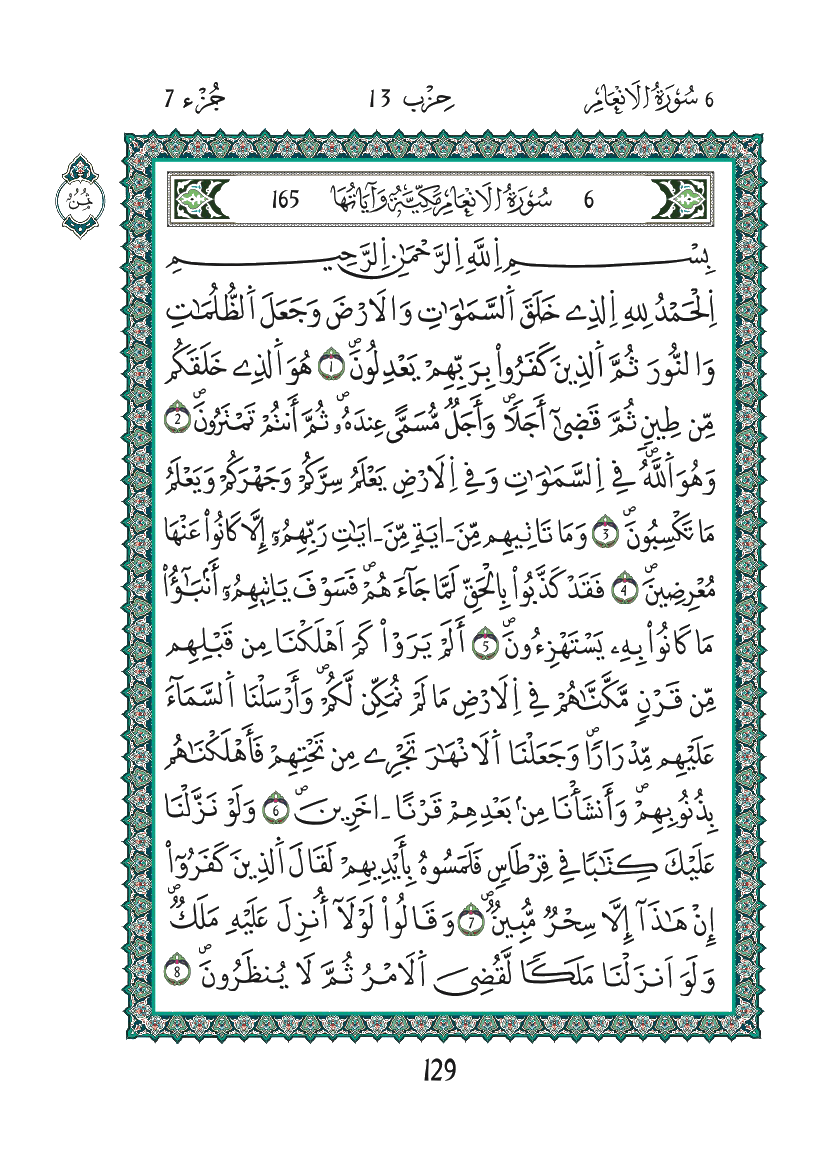 6 سُورَةُ الَانْعَامِ
حِزْب 13
جُزْء 7
ثُمُن
6 سُورَةُ الَانْعَامِ مَكِّيَّةٌ وَآيَاتُهَا 165
بِسْمِ اِللَّهِ اِلرَّحْمَٰنِ اِلرَّحِيمِ
اِلْحَمْدُ لِلهِ اِلذِے خَلَقَ اَلسَّمَٰوَٰتِ وَالَارْضَ وَجَعَلَ اَلظُّلُمَٰتِ
وَالنُّورَ ثُمَّ اَلذِينَ كَفَرُواْ بِرَبِّهِمْ يَعْدِلُونَ 1 هُوَ اَلذِے خَلَقَكُم
مِّن طِينٍ ثُمَّ قَضَىٰٓ أَجَلًا وَأَجَلٌ مُّسَمًّى عِندَهُۥ ثُمَّ أَنتُمْ تَمْتَرُونَ 2
وَهُوَ اَللَّهُ فِے اِلسَّمَٰوَٰتِ وَفِے اِلَارْضِ يَعْلَمُ سِرَّكُمْ وَجَهْرَكُمْ وَيَعْلَمُ
مَا تَكْسِبُونَ 3 وَمَا تَاتِيهِم مِّنَ ـ ايَةٍ مِّنَ ـ ايَٰتِ رَبِّهِمُۥٓ إِلَّا كَانُواْ عَنْهَا
مُعْرِضِينَ 4 فَقَدْ كَذَّبُواْ بِالْحَقِّ لَمَّا جَآءَهُمْ فَسَوْفَ يَاتِيهِمُۥٓ أَنۢبَٰٓؤُاْ
مَا كَانُواْ بِهِۦ يَسْتَهْزِءُونَ 5 أَلَمْ يَرَوْاْ كَمَ اَهْلَكْنَا مِن قَبْلِهِم
مِّن قَرْنٍ مَّكَّنَّٰهُمْ فِے اِلَارْضِ مَا لَمْ نُمَكِّن لَّكُمْ وَأَرْسَلْنَا اَلسَّمَآءَ
عَلَيْهِم مِّدْرَارًا وَجَعَلْنَا اَلَانْهَٰرَ تَجْرِے مِن تَحْتِهِمْ فَأَهْلَكْنَٰهُم
بِذُنُوبِهِمْ وَأَنشَأْنَا مِنۢ بَعْدِهِمْ قَرْنًا ـ اخَرِينَ 6 وَلَوْ نَزَّلْنَا
عَلَيْكَ كِتَٰبًا فِے قِرْطَاسٍ فَلَمَسُوهُ بِأَيْدِيهِمْ لَقَالَ اَلذِينَ كَفَرُوٓاْ
إِنْ هَٰذَآ إِلَّا سِحْرٌ مُّبِينٌ 7 وَقَالُواْ لَوْلَآ أُنزِلَ عَلَيْهِ مَلَكٌ
وَلَوَ اَنزَلْنَا مَلَكًا لَّقُضِىَ اَلَامْرُ ثُمَّ لَا يُنظَرُونَ 8
129